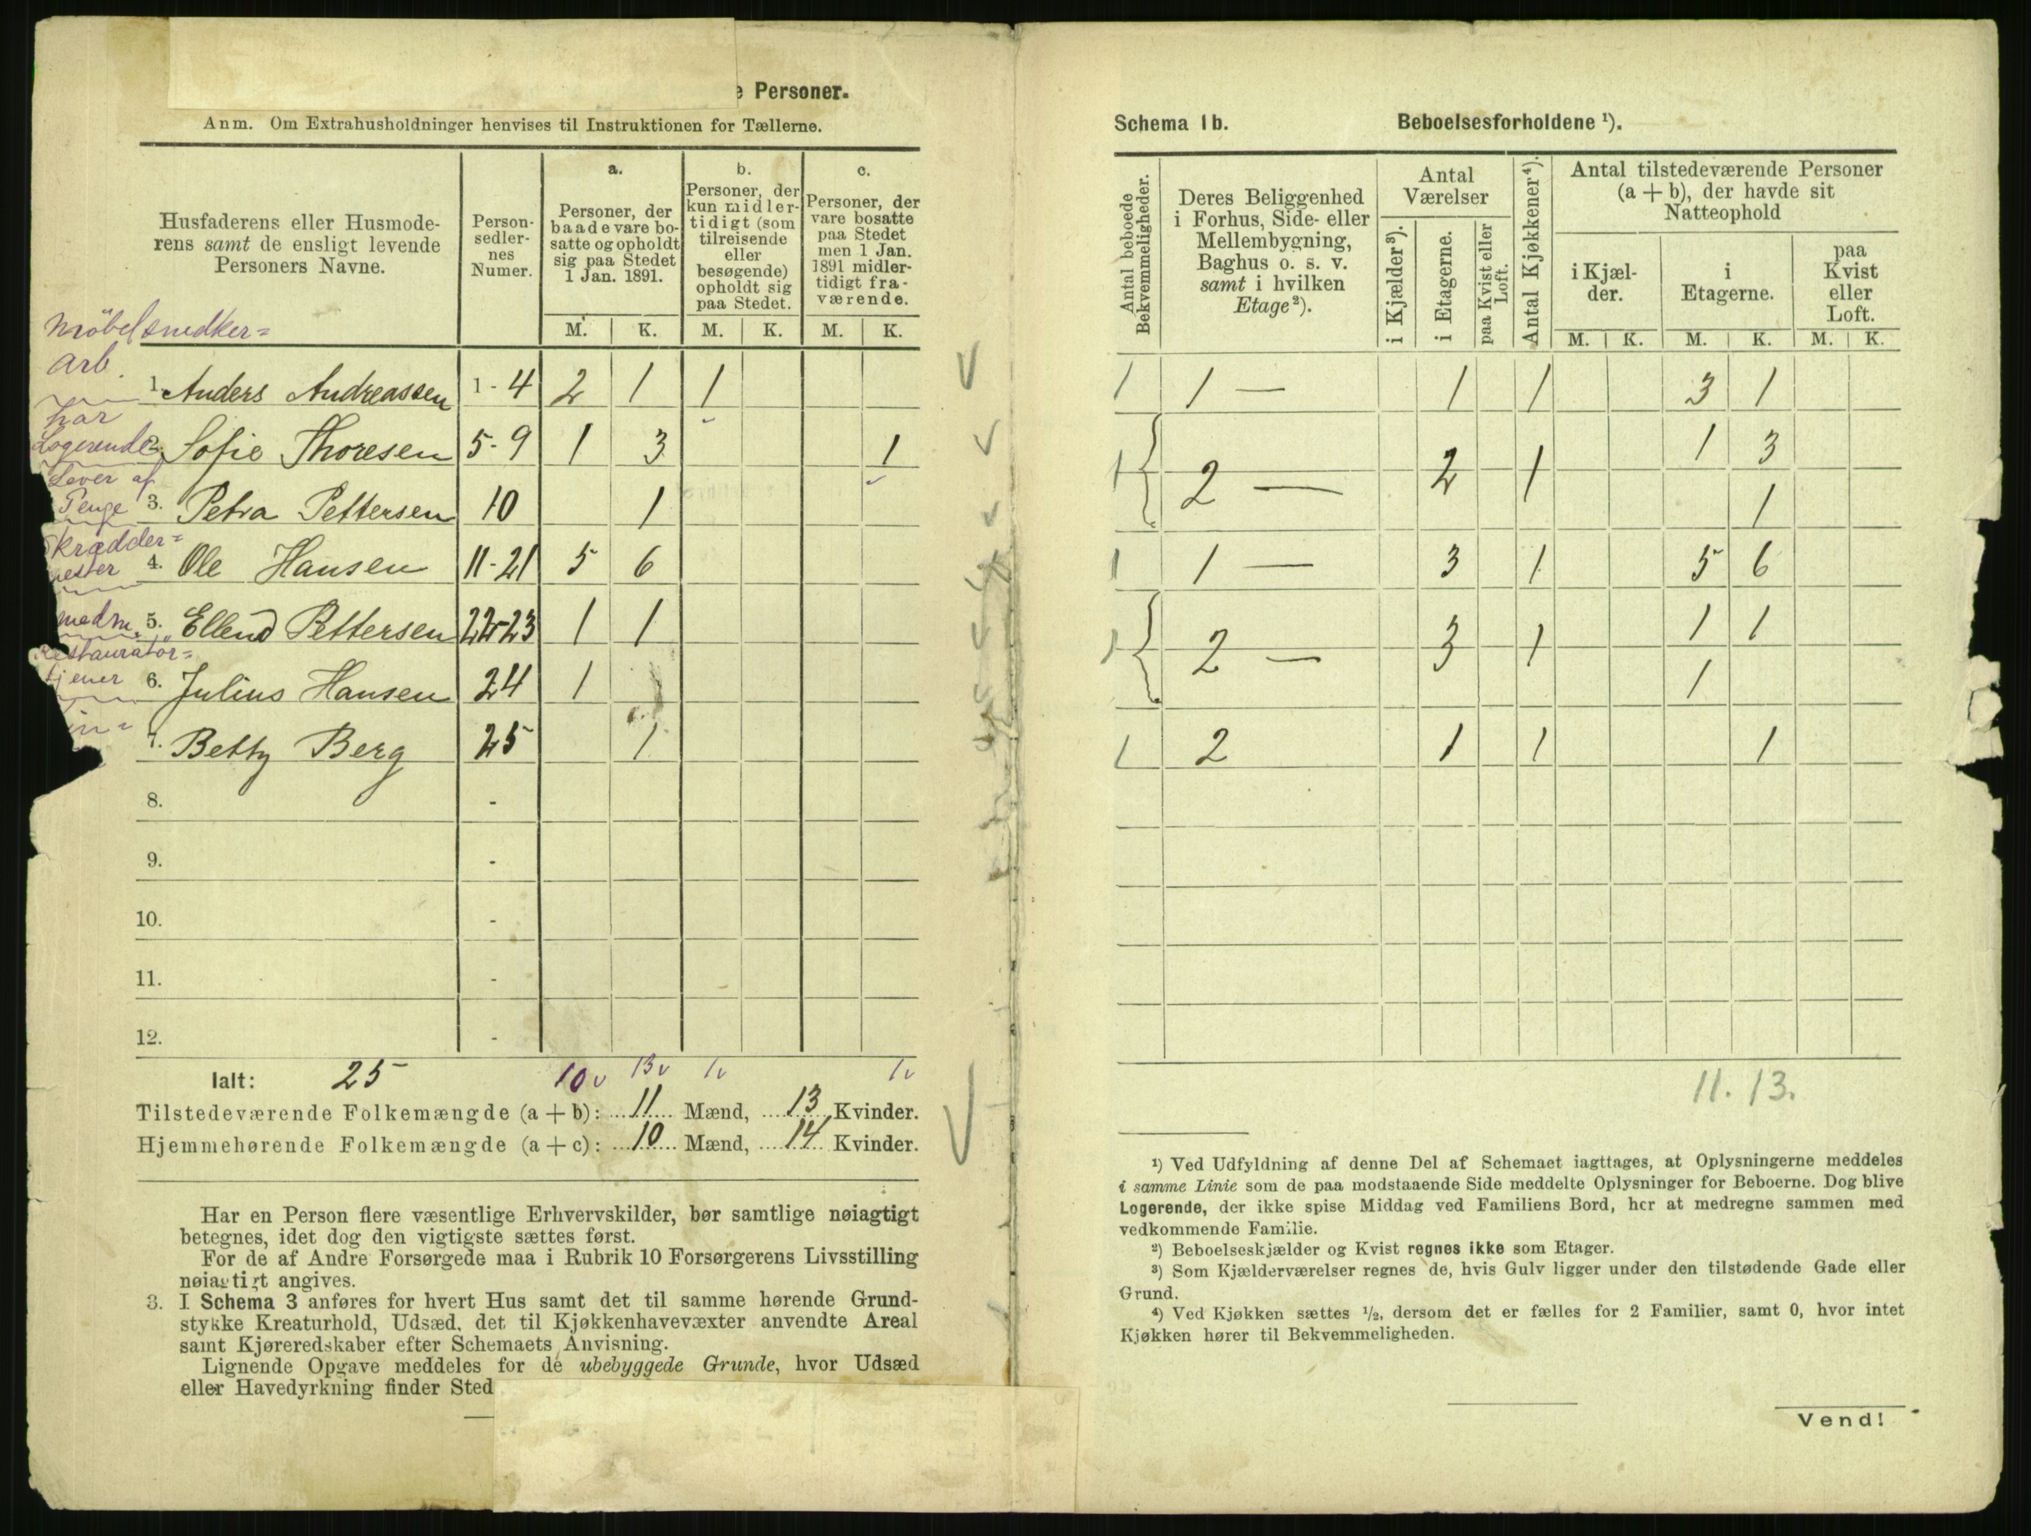 Personer.
Anm. Om Extrahusholdninger henvises til Instruktionen for Tællerne.
Husfaderens eller Husmode-
rens samt de ensligt levende
Personers Navne.
Person-
sedler-
nes
Numer.
a.
Personer, der
baade vare bo-
satte og opholdt
sig paa Stedet
1 Jan. 1891.
b.
Personer, der
kun midler-
tidigt (som
tilreisende
eller
besøgende)
opholdt sig
paa Stedet.
c.
Personer, der
vare bosatte
paa Stedet
men 1 Jan.
1891 midler-
tidigt fra-
værende.
M. K. M. K. M. K.
Möbelsnedker=
arb.
1. Anders Andreassen 1-4 2 1 1
har
Logerende
2. Sofie Thoresen 5-9 1 3 1
Lever af
Penge
3. Petra Pettersen 10 1
4. Ole Hansen 11-21 5 6
5. Ellend Pettersen 22-23 1 1
Restauratør=
tjener
6. Julius Hansen 24 1
7. Betty Berg 25 1
8. -
9. -
10. -
11. -
12. -
Ialt: 25 10 v 13 v 1 v 1 v
Tilstedeværende Folkemængde (a + b): 11 Mænd, 13 Kvinder.
Hjemmehørende Folkemængde (a + c): 10 Mænd, 14 Kvinder.
Har en Person flere væsentlige Erhvervskilder, bør samtlige nøiagtigt
betegnes, idet dog den vigtigste sættes først.
For de af Andre Forsørgede maa i Rubrik 10 Forsørgerens Livsstilling
nøiagtigt angives.
3. I Schema 3 anføres for hvert Hus samt det til samme hørende Grund-
stykke Kreaturhold, Udsæd, det til Kjøkkenhavevæxter anvendte Areal
samt Kjøreredskaber efter Schemaets Anvisning.
Lignende Opgave meddeles for de ubebyggede Grunde, hvor Udsæd
eller Havedyrkning finder Sted
Schema 1 b. Beboelsesforholdene ¹).
Antal beboede
Bekvemmeligheder.
Deres Beliggenhed
i Forhus, Side- eller
Mellembygning,
Baghus o. s. v.
samt i hvilken
Etage²).
Antal
Værelser
i Kjælder³).
i Etagerne.
paa Kvist eller
Loft.
Antal Kjøkkener⁴).
Antal tilstedeværende Personer
(a + b), der havde sit
Natteophold
i Kjæl-
der.
i
Etagerne.
paa
Kvist
eller
Loft.
M. K. M. K. M. K.
1 1 — 1 1 3 1
1 2 — 2 1 1 3
1
1 1 — 3 1 5 6
1 2 — 3 1 1 1
1
1 2 1 1 1
11. 13.
¹) Ved Udfyldning af denne Del af Schemaet iagttages, at Oplysningerne meddeles
i samme Linie som de paa modstaaende Side meddelte Oplysninger for Beboerne. Dog blive
Logerende, der ikke spise Middag ved Familiens Bord, her at medregne sammen med
vedkommende Familie.
²) Beboelseskjælder og Kvist regnes ikke som Etager.
³) Som Kjælderværelser regnes de, hvis Gulv ligger under den tilstødende Gade eller
Grund.
⁴) Ved Kjøkken sættes ¹/₂, dersom det er fælles for 2 Familier, samt 0, hvor intet
Kjøkken hører til Bekvemmeligheden.
Vend!